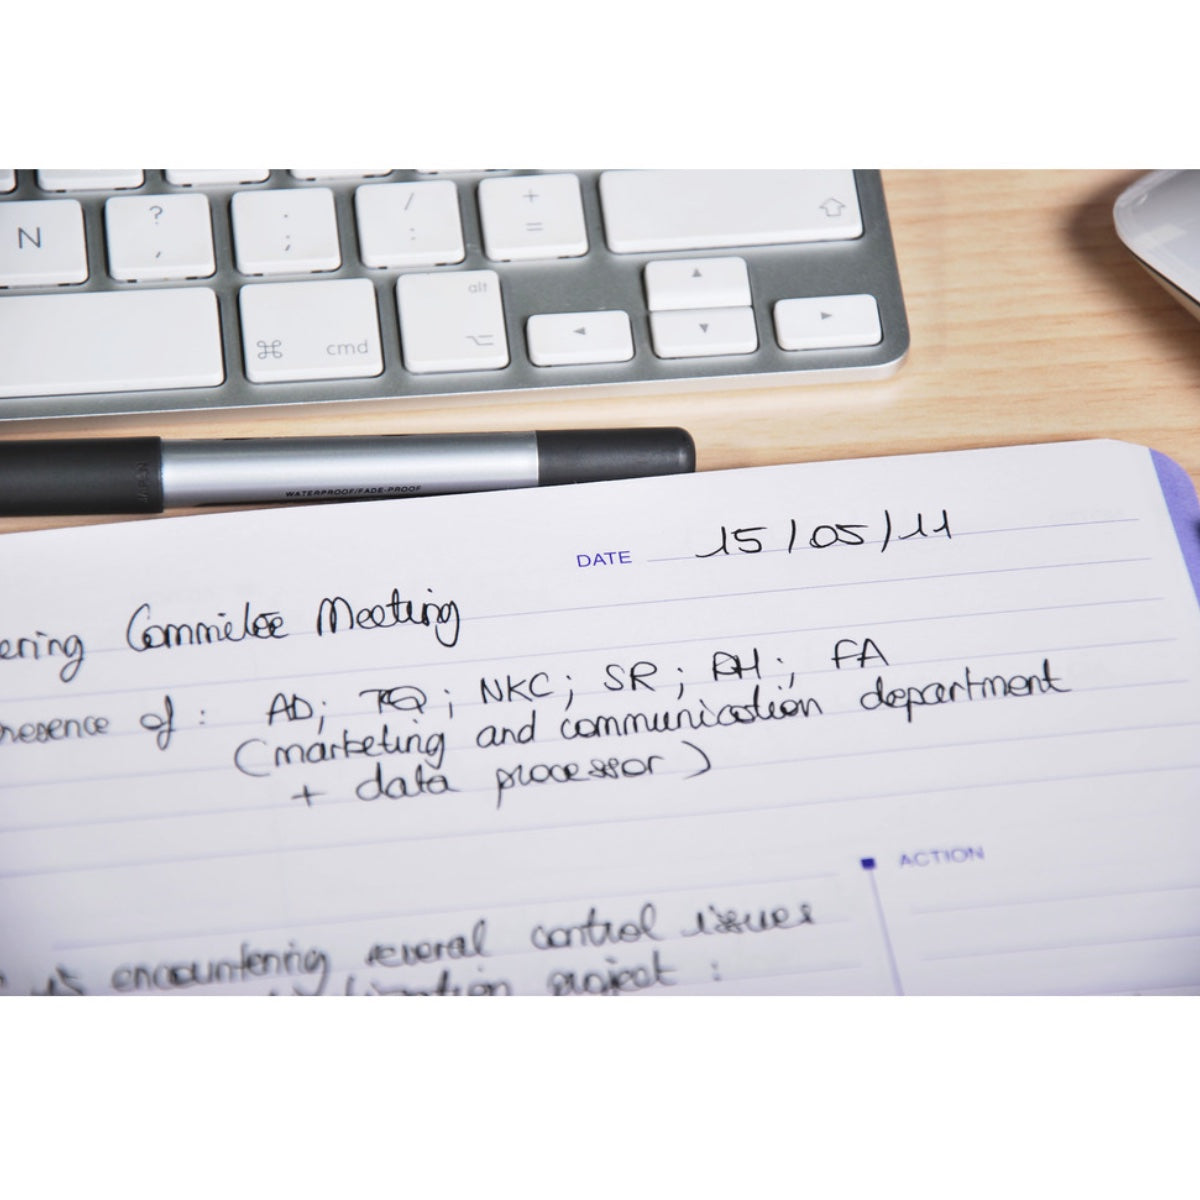 N
? ,
. ;
/ :
+ =
alt
⌘ cmd
WATERPROOF/FADE-PROOF
DATE 15/05/11
ering Commitee Meeting
resence of : AD; TQ; NKC; SR; RH; FA
(marketing and communication department
+ data processor)
ACTION
encountering several control issues
project :